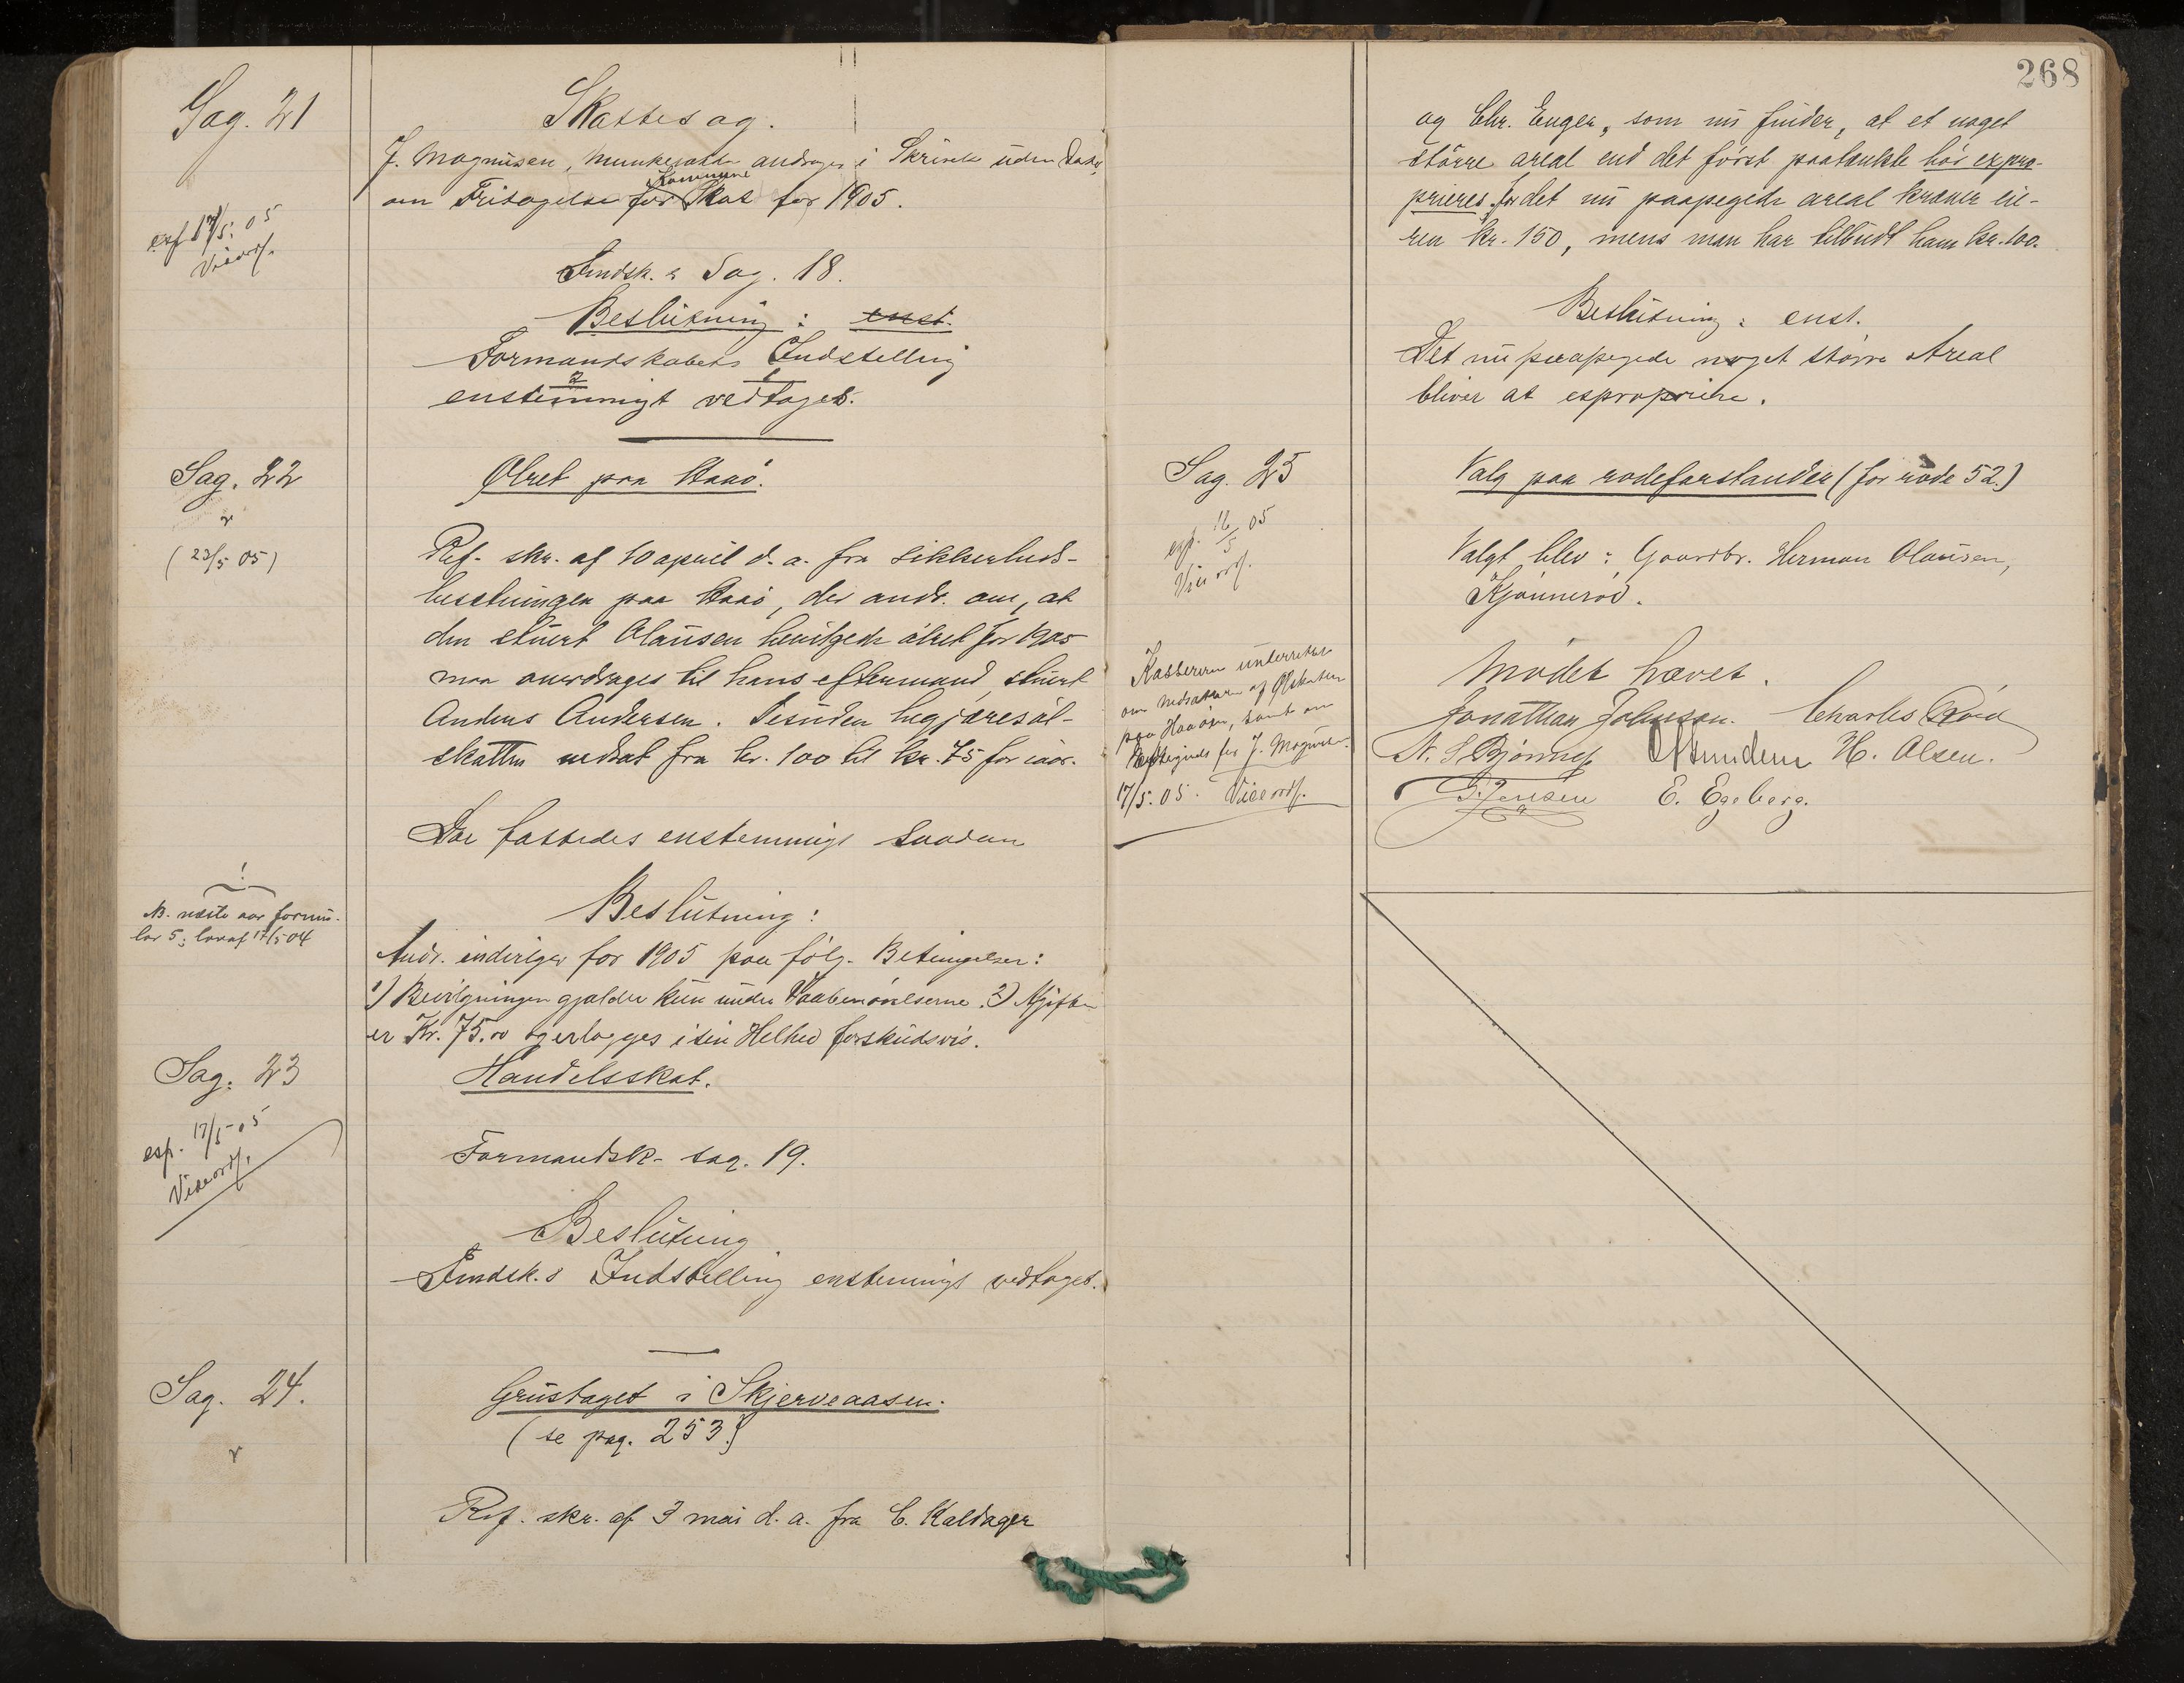 Sag. 21
exp 17/5. 05
Viceordf.
Skattesag.
J. Magnusen, Munkerød andrager i Skrivelse uden Dato,
om Fritagelse for Kommune Skat for 1905.
Fmdsk. Sag. 18.
Beslutning: enst.
Formandskabets Indstilling
enstemmigt vedtaget.
Sag. 22
(23/5 05)
Ølret paa Haaø.
Ref. skr. af 10 april d. a. fra sikkerheds-
besetningen paa Haaø, der andr. om, at
den stuert Olausen bevilgede ølret for 1905
maa overdrages til hans eftermand, stuert
Anders Andersen. Desuden begjæres øl-
skatten nedsat fra kr. 100 til kr. 75 for iaar.
Der fattedes enstemmigt saadan
Beslutning:
NB. næste aar formu-
lar 5, lov af 17/5 04
Andr. indvilges for 1905 paa følg. Betingelser:
1) Bevilgningen gjælder kun under Vaabenøvelserne. 2) Afgiften
er Kr. 75.00 og erlægges i sin Helhed forskudsvis.
Sag. 23
exp. 17/5 05
Viceordf.
Handelsskat.
Formandsk. sag. 19.
Beslutning
Fmdsk.s Indstilling enstemmigt vedtaget.
Sag. 24.
Grustaget i Skjerveaasen.
(se pag. 253)
Ref. skr. af 3 mai d. a. fra C. Kaldager
268
og Chr. Enger, som nu finder, at et noget
større areal end det først paatænkte bør expro-
prieres. For det nu paapegede areal kræver eie-
ren kr. 150, mens man har tilbudt ham kr. 100.
Beslutning: enst.
Det nu paapegede noget større Areal
bliver at expropriere.
Sag. 25
exp. 16/5 05
Viceordf.
Valg paa rodeforstander (for rode 52.)
Valgt blev: Gaardbr. Herman Olausen,
Kjønnerød.
Kassereren underrettet
om Nedsættelse af Ølskatten
paa Haaøen, samt om
for J. Magnusen
17/5. 05. Viceordf.
Mødet hævet.
Jonathan Johnsen. Charles
N. S. Bjønnes H. Olsen.
G. Jensen E. Egeberg.